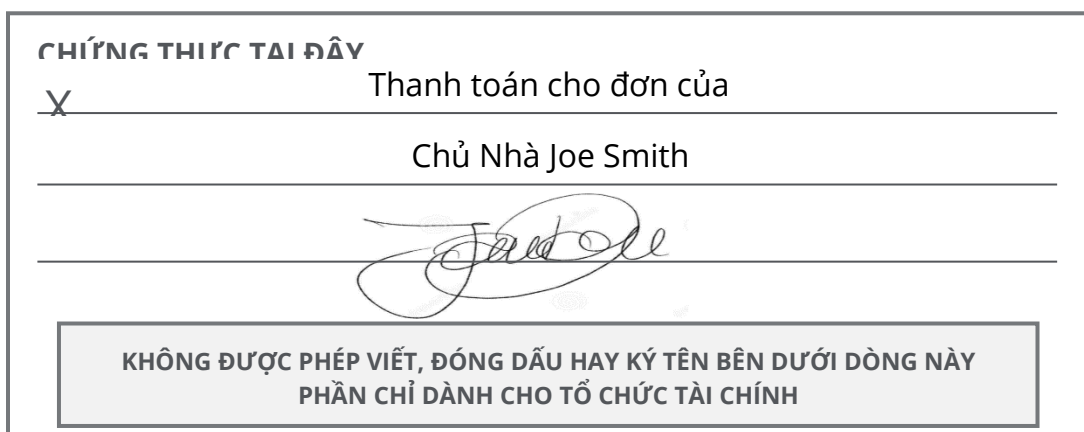 CHỨNG THỰC TẠI ĐÂY
X Thanh toán cho đơn của
Chủ Nhà Joe Smith
KHÔNG ĐƯỢC PHÉP VIẾT, ĐÓNG DẤU HAY KÝ TÊN BÊN DƯỚI DÒNG NÀY
PHẦN CHỈ DÀNH CHO TỔ CHỨC TÀI CHÍNH